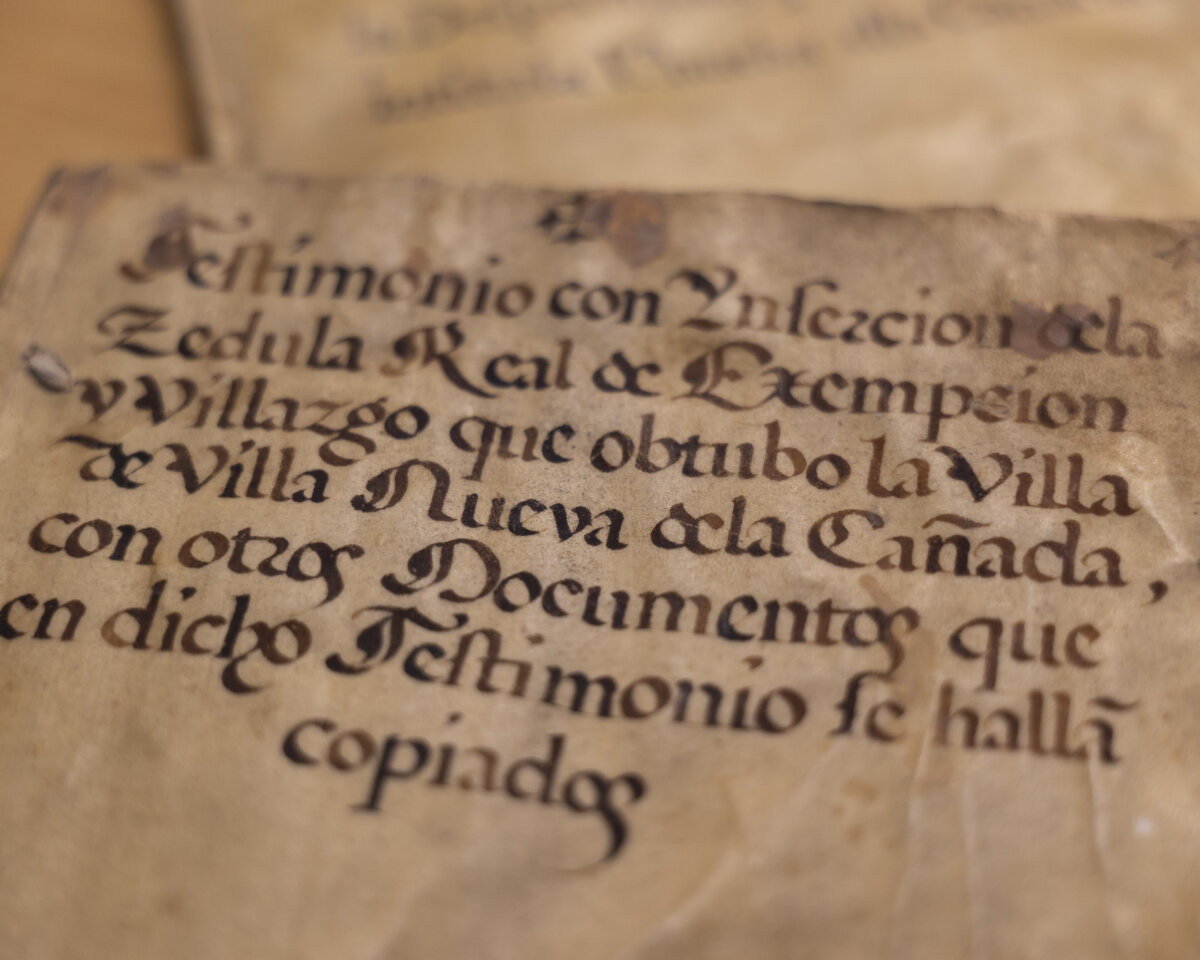 Testimonio con Ynsercion dela
Zedula Real de Exempsion
y Villazgo que obtubo la Villa
de Villa Nueva dela Cañada,
con otros Documentos que
en dicho Testimonio se hallã
copiados